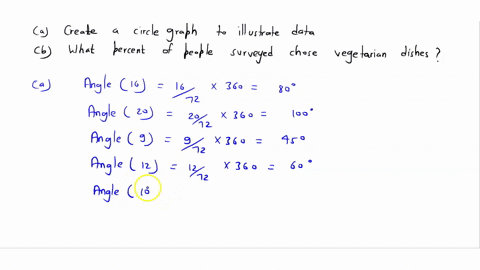 (a) Create a circle graph to illustrate data
(b) What percent of people surveyed chose vegetarian dishes ?
(a) Angle (16) = 16/72 × 360 = 80°
Angle (20) = 20/72 × 360 = 100°
Angle (9) = 9/72 × 360 = 450
Angle (12) = 12/72 × 360 = 60°
Angle (18